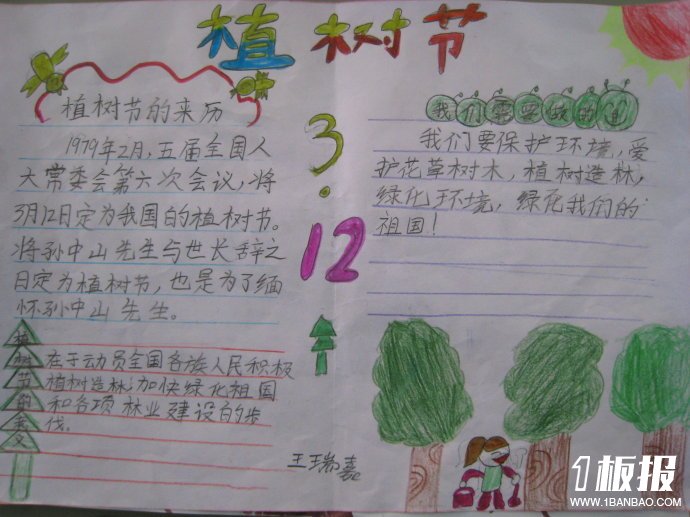 植树节
植树节的来历
1979年2月,五届全国人
大常委会第六次会议,将
3月12日定为我国的植树节。
将孙中山先生与世长辞之
日定为植树节,也是为了缅
怀孙中山先生。
植树节的意义
在于动员全国各族人民积极
植树造林,加快绿化祖国
和各项林业建设的步
伐。
3.12
我们需要做的是
我们要保护环境,爱
护花草树木,植树造林,
绿化环境,绿化我们的
祖国!
王瑞嘉
1板报
WWW.1BANBAO.COM